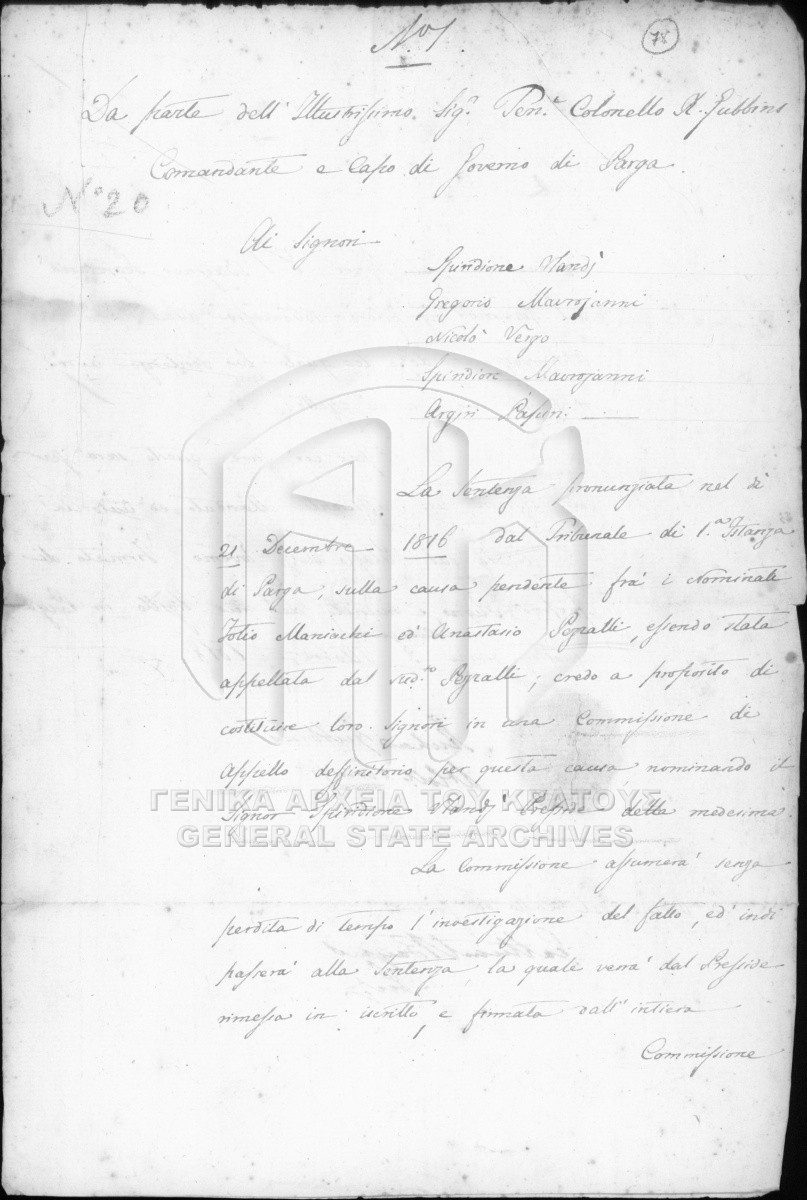 N.º 1.
78
Da parte dell' Illustrissimo. Sig.r Ten.e Colonello Gubbins
Comandante e Capo di Governo di Parga.
Nº 20
Ai Signori
Spiridione Vlandj
Gregorio Mavrojanni
Nicolò Vergo
Spiridion Mavrojanni
Argiri
La Sentenza pronunziata nel dì
21 Decembre 1816 dal Tribunale di 1.ma Istanza
di Parga, sulla causa pendente frà i Nominati
Fotio Maniachi ed' Anastasio, essendo stata
appellata dal sud.to; credo a proposito di
costituire loro Signori in una Commissione di
Appello deffinitorio per questa causa, nominando il
Signor Spiridione Vlandj Presside della medesima.
La Commissione assumerà senza
perdita di tempo l'investigazione del fatto, ed' indi
passerà alla Sentenza, la quale verrà dal Presside
rimessa in iscritto, e firmata dall' intiera
Commissione
ΓΕΝΙΚΑ ΑΡΧΕΙΑ ΤΟΥ ΚΡΑΤΟΥΣ
GENERAL STATE ARCHIVES